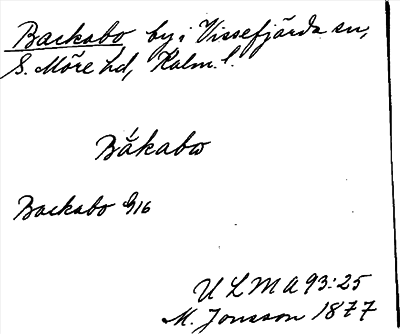 Backabo by i Vissefjärda sn,
S. Möre hd, Kalm. l.
Båkabo
Backabo 916
ULMA 93:25
M. Jonsson 1877